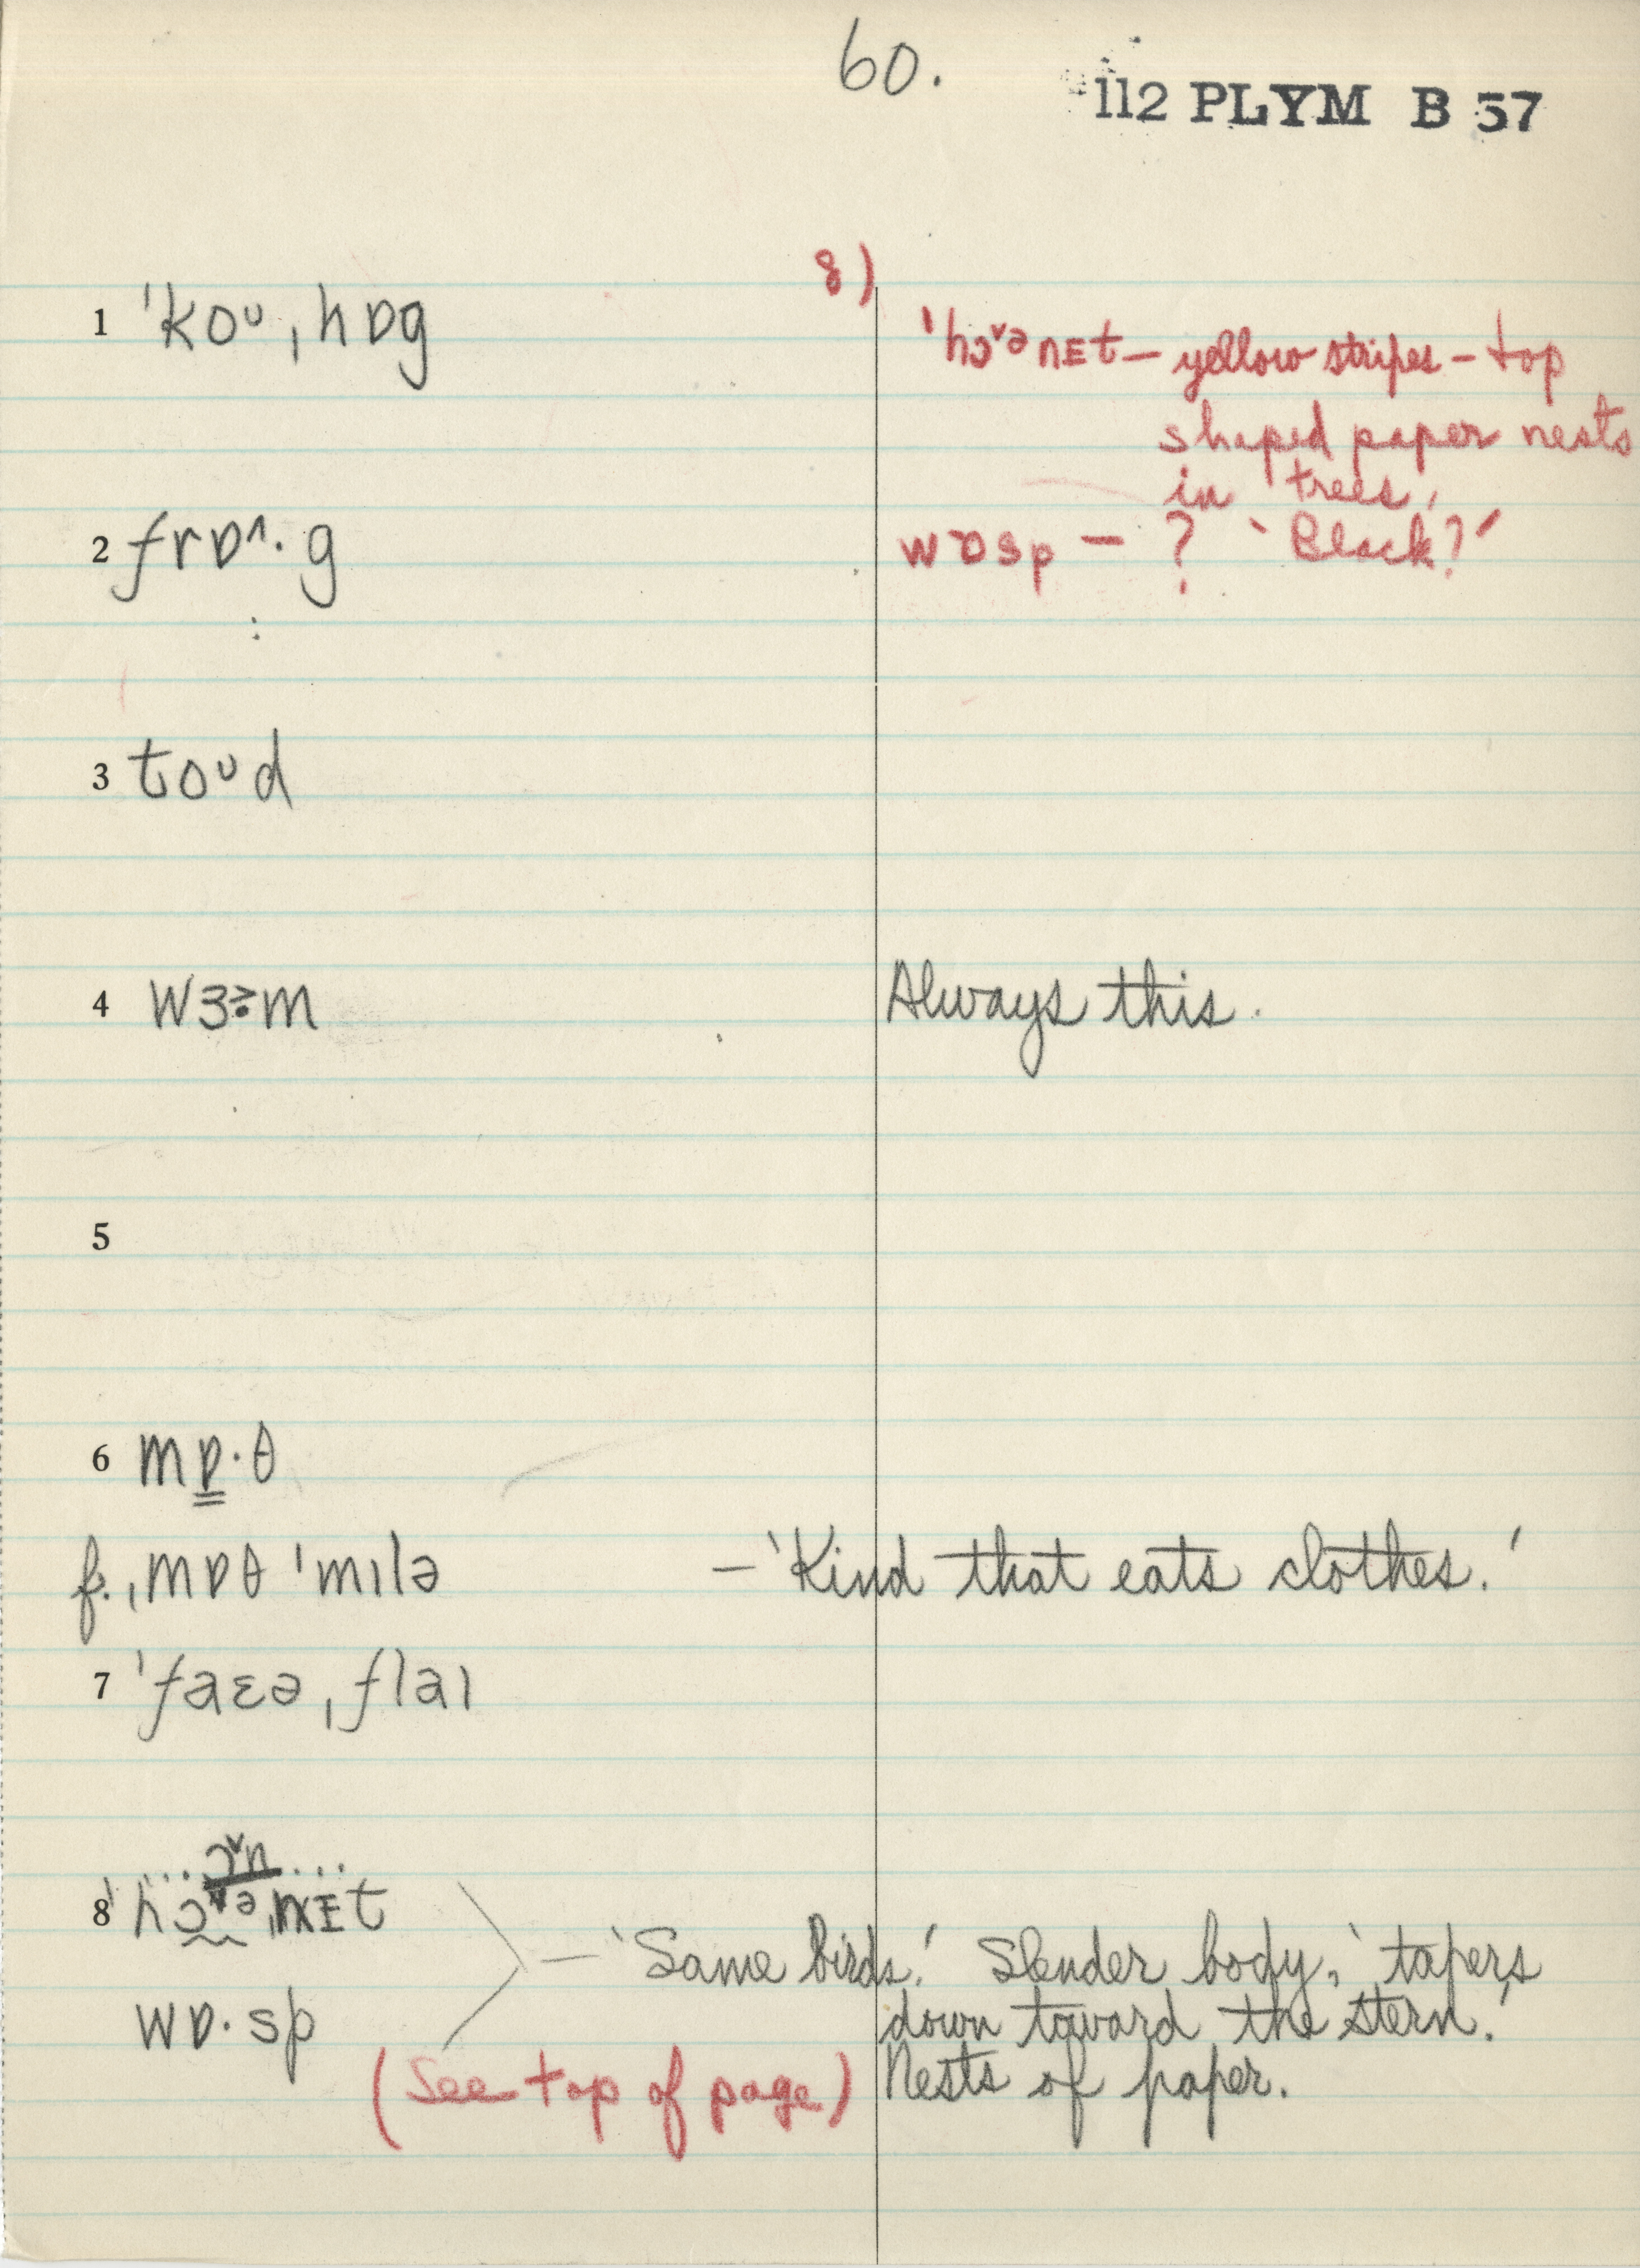 60.
112 PLYM B 57
8)
ˈhɔˇᵊnɛt – yellow stripes – top
shaped paper nests
in trees,
wɒsp – ? 'Black?'
1 ˈkoᶷˌhɒg
2 frɒ^·g
3 toᶷd
4 wɜ˞m Always this.
5
6 mɒ·θ
f. ˌmɒθ ˈmɪlə – 'Kind that eats clothes.'
7 ˈfaɛəˌflaɪ
... ɔˇn ...
8 ˈhɔˇᵊnɪt
– 'Same birds.' Slender body, 'tapers
wɒ·sp down toward the stern.'
(See top of page) Nests of paper.